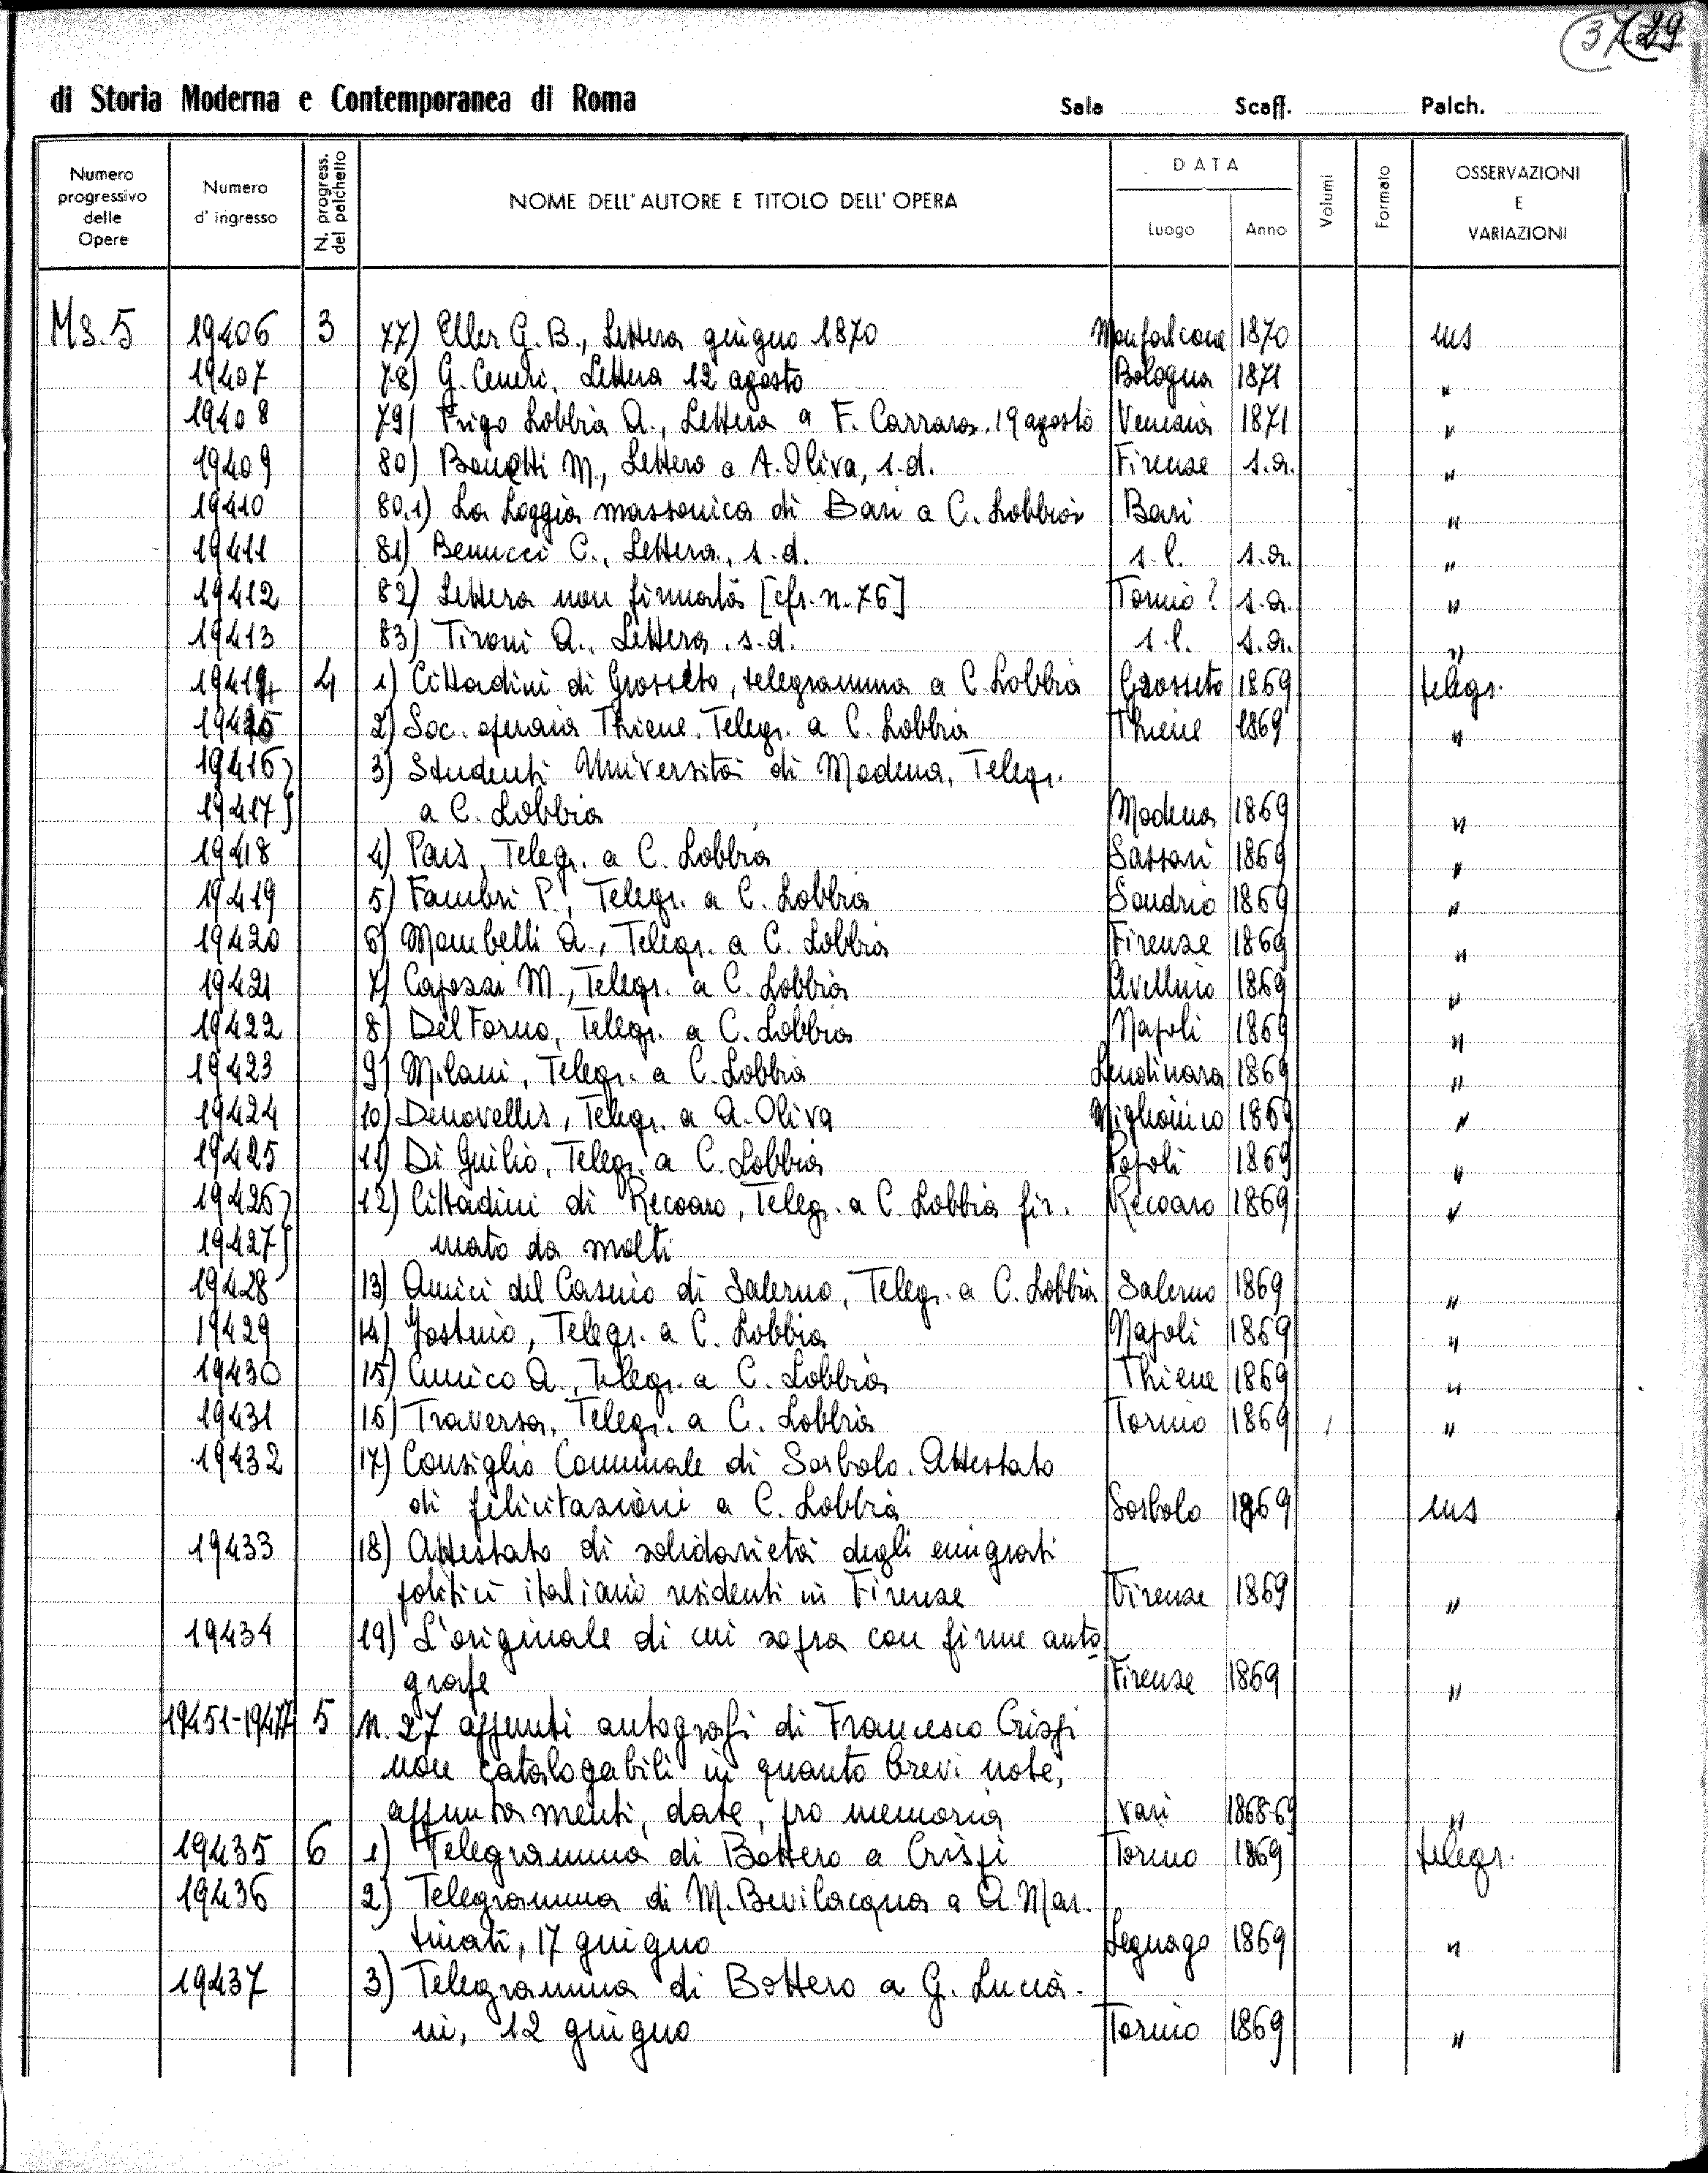 37 29
di Storia Moderna e Contemporanea di Roma Sala Scaff. Palch.
Numero progressivo delle Opere Numero d' ingresso N. progress. del palchetto NOME DELL' AUTORE E TITOLO DELL' OPERA DATA Luogo Anno Volumi Formato OSSERVAZIONI E VARIAZIONI
Ms. 5 19406 3 77) Eller G. B., Lettera giugno 1870 Monfalcone 1870 ms
19407 78) G. Ceneri, Lettera 12 agosto Bologna 1871 "
19408 79) Frigo Lobbia A., Lettera a F. Carrara, 19 agosto Venezia 1871 "
19409 80) Bonotti M., Lettera a A. Oliva, s.d. Firenze s.a. "
19410 80.1) La Loggia massonica di Bari a C. Lobbia Bari "
19411 81) Benucci C., Lettera, s.d. s.l. s.a. "
19412 82) Lettera non firmata [cfr. n. 76] Torino? s.a. "
19413 83) Tironi A., Lettera, s.d. s.l. s.a. "
19414 4 1) Cittadini di Grosseto, telegramma a C. Lobbia Grosseto 1869 telegr.
19415 2) Soc. operaia Thiene, Telegr. a C. Lobbia Thiene 1869 "
19416) 3) Studenti Università di Modena, Telegr.
19417) a C. Lobbia Modena 1869 "
19418 4) Pais, Telegr. a C. Lobbia Sassari 1869 "
19419 5) Fambri P., Telegr. a C. Lobbia Sondrio 1869 "
19420 6) Mombelli A., Telegr. a C. Lobbia Firenze 1869 "
19421 7) Capozzi M., Telegr. a C. Lobbia Avellino 1869 "
19422 8) Del Forno, Telegr. a C. Lobbia Napoli 1869 "
19423 9) Milani, Telegr. a C. Lobbia Lendinara 1869 "
19424 10) Denovellis, Telegr. a A. Oliva Miglionico 1869 "
19425 11) Di Giulio, Telegr. a C. Lobbia Popoli 1869 "
19426) 12) Cittadini di Recoaro, Telegr. a C. Lobbia fir- Recoaro 1869 "
19427) mato da molti
19428 13) Amici del Casino di Salerno, Telegr. a C. Lobbia Salerno 1869 "
19429 14) Telegr. a C. Lobbia Napoli 1869 "
19430 15) A., Telegr. a C. Lobbia Thiene 1869 "
19431 16) Traversa, Telegr. a C. Lobbia Torino 1869 "
19432 17) Consiglio Comunale di Sorbolo. Attestato
di felicitazioni a C. Lobbia Sorbolo 1869 ms
19433 18) Attestato di solidarietà degli emigrati
politici italiani residenti in Firenze Firenze 1869 "
19434 19) L'originale di cui sopra con firme auto-
grafe Firenze 1869 "
19451-19477 5 N. 27 appunti autografi di Francesco Crispi
non catalogabili in quanto brevi note,
appuntamenti, date, pro memoria vari 1868-69 "
19435 6 1) Telegramma di Bottero a Crispi Torino 1869 telegr.
19436 2) Telegramma di M. Bevilacqua a A. Mar-
tinati, 17 giugno Legnago 1869 "
19437 3) Telegramma di Bottero a G. Lucia-
ni, 12 giugno Torino 1869 "